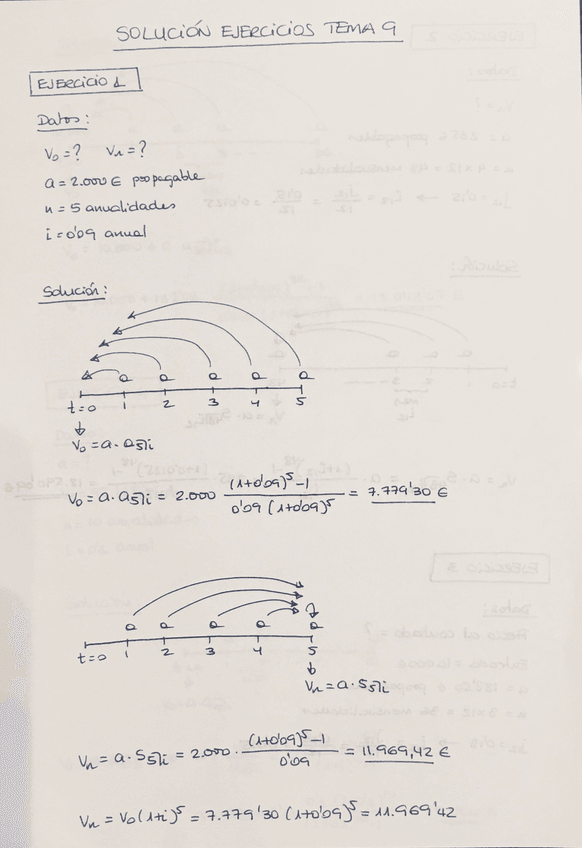 SOLUCIÓN EJERCICIOS TEMA 9
EJERCICIO 1
Datos:
V₀ = ? Vₙ = ?
a = 2.000 € pospagable
n = 5 anualidades
i = 0'09 anual
Solución:
a a a a a
t=0 1 2 3 4 5
V₀ = a · a5̅|i
V₀ = a · a5̅|i = 2.000 (1+0'09)⁵-1 / 0'09 (1+0'09)⁵ = 7.779'30 €
a a a a a
t=0 1 2 3 4 5
Vₙ = a · S5̅|i
Vₙ = a · S5̅|i = 2.000 · (1+0'09)⁵-1 / 0'09 = 11.969,42 €
Vₙ = V₀ (1+i)⁵ = 7.779'30 (1+0'09)⁵ = 11.969'42